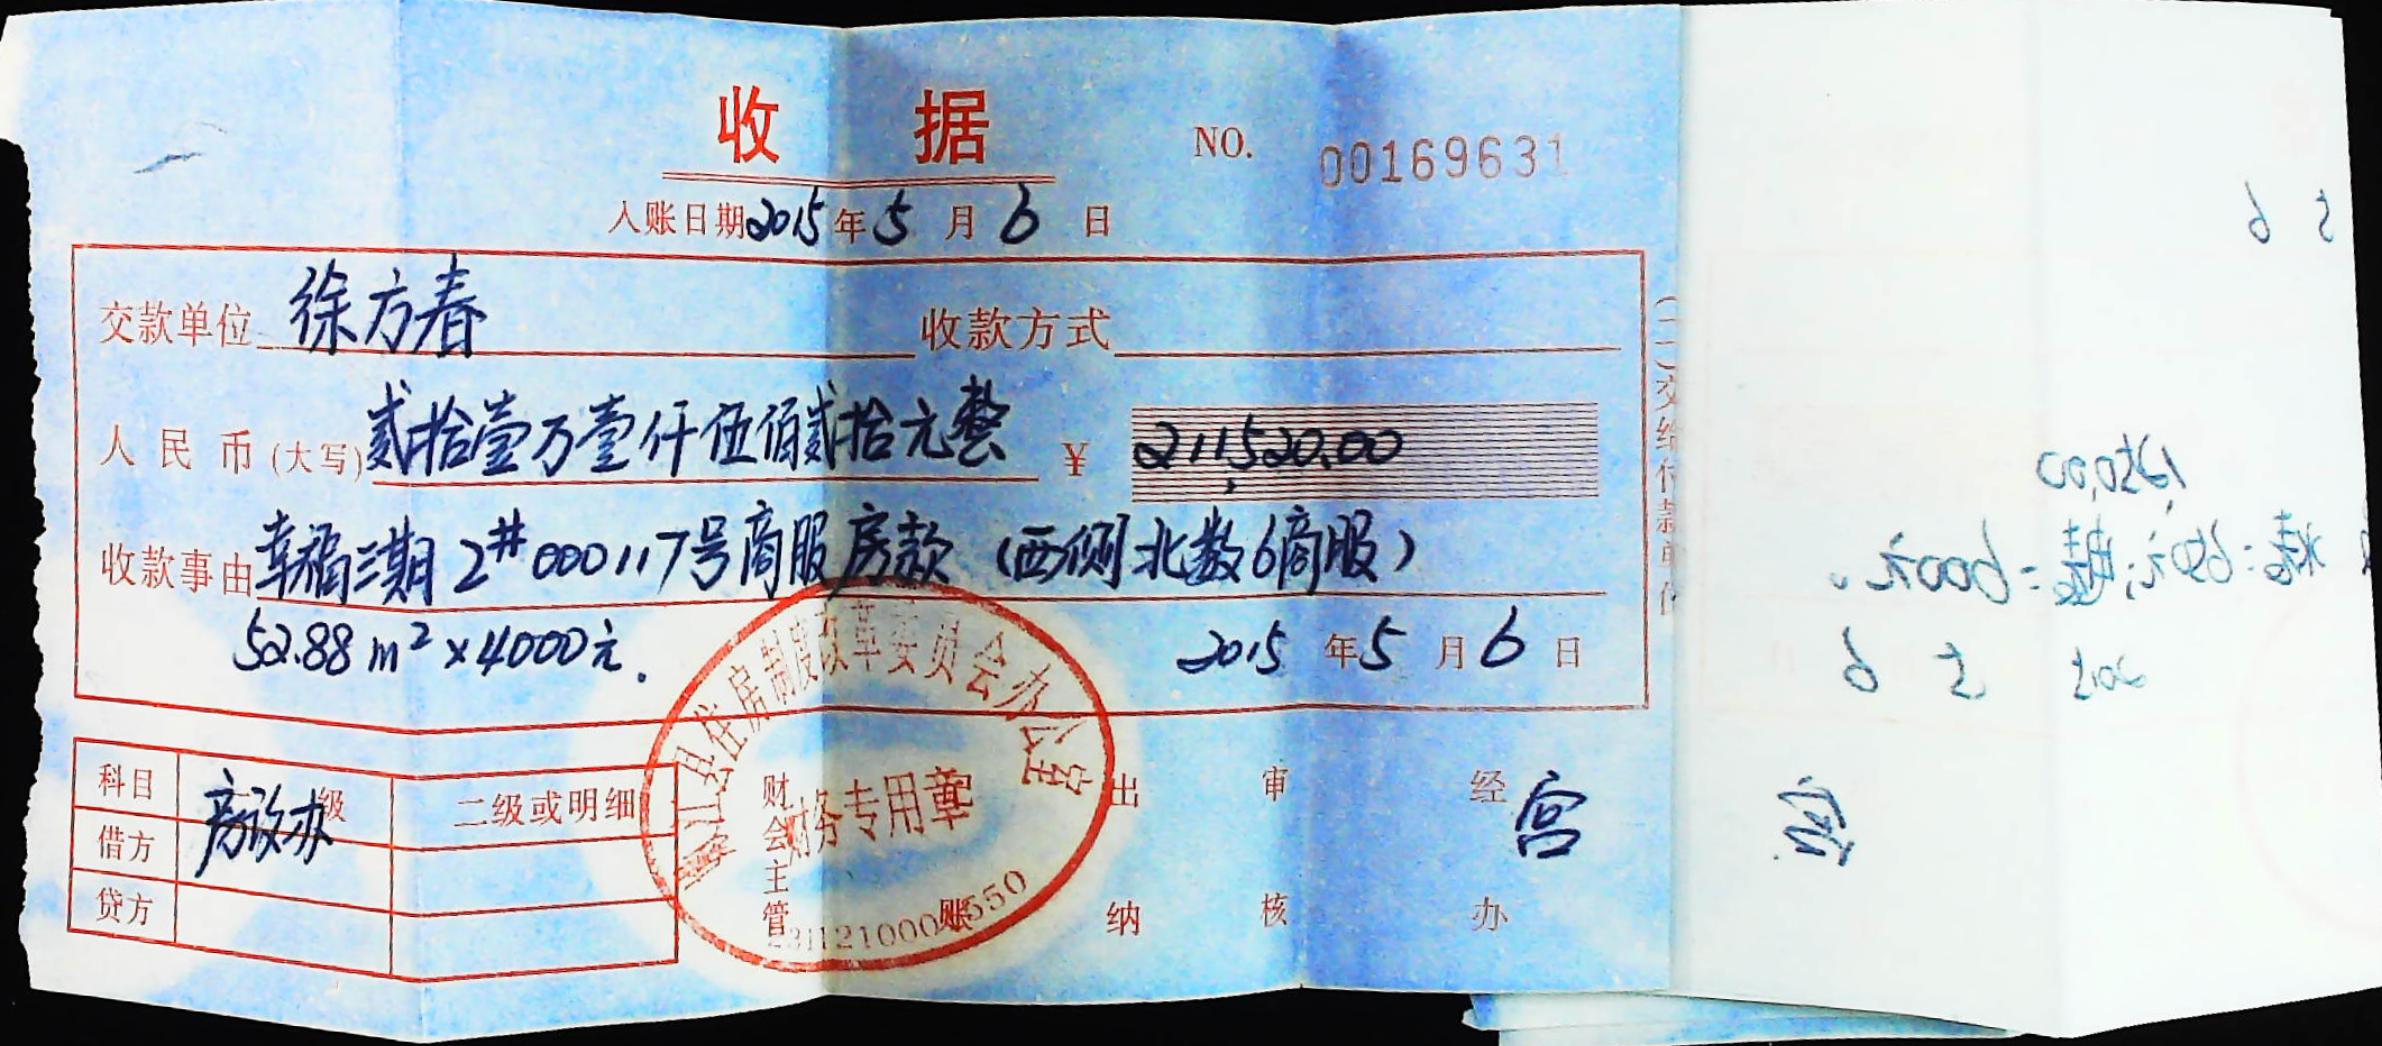 收 据
NO. 00169631
入账日期2015年5月6日
交款单位 徐方春 收款方式
人民币(大写)贰拾壹万壹仟伍佰贰拾元整 ¥ 211,520.00
收款事由 幸福三期2#000117号商服房款(西侧北数6商服)
52.88m²×4000元.
2015年5月6日
(二)交给付款单位
科目 级 二级或明细
房改办
借方
贷方
县住房制度改革委员会办公室
财务专用章
财会主管
账
出纳
审核
经办
宫
5 6
1250.00
水卡:650元;电卡:600元。
2015 5 6
宫